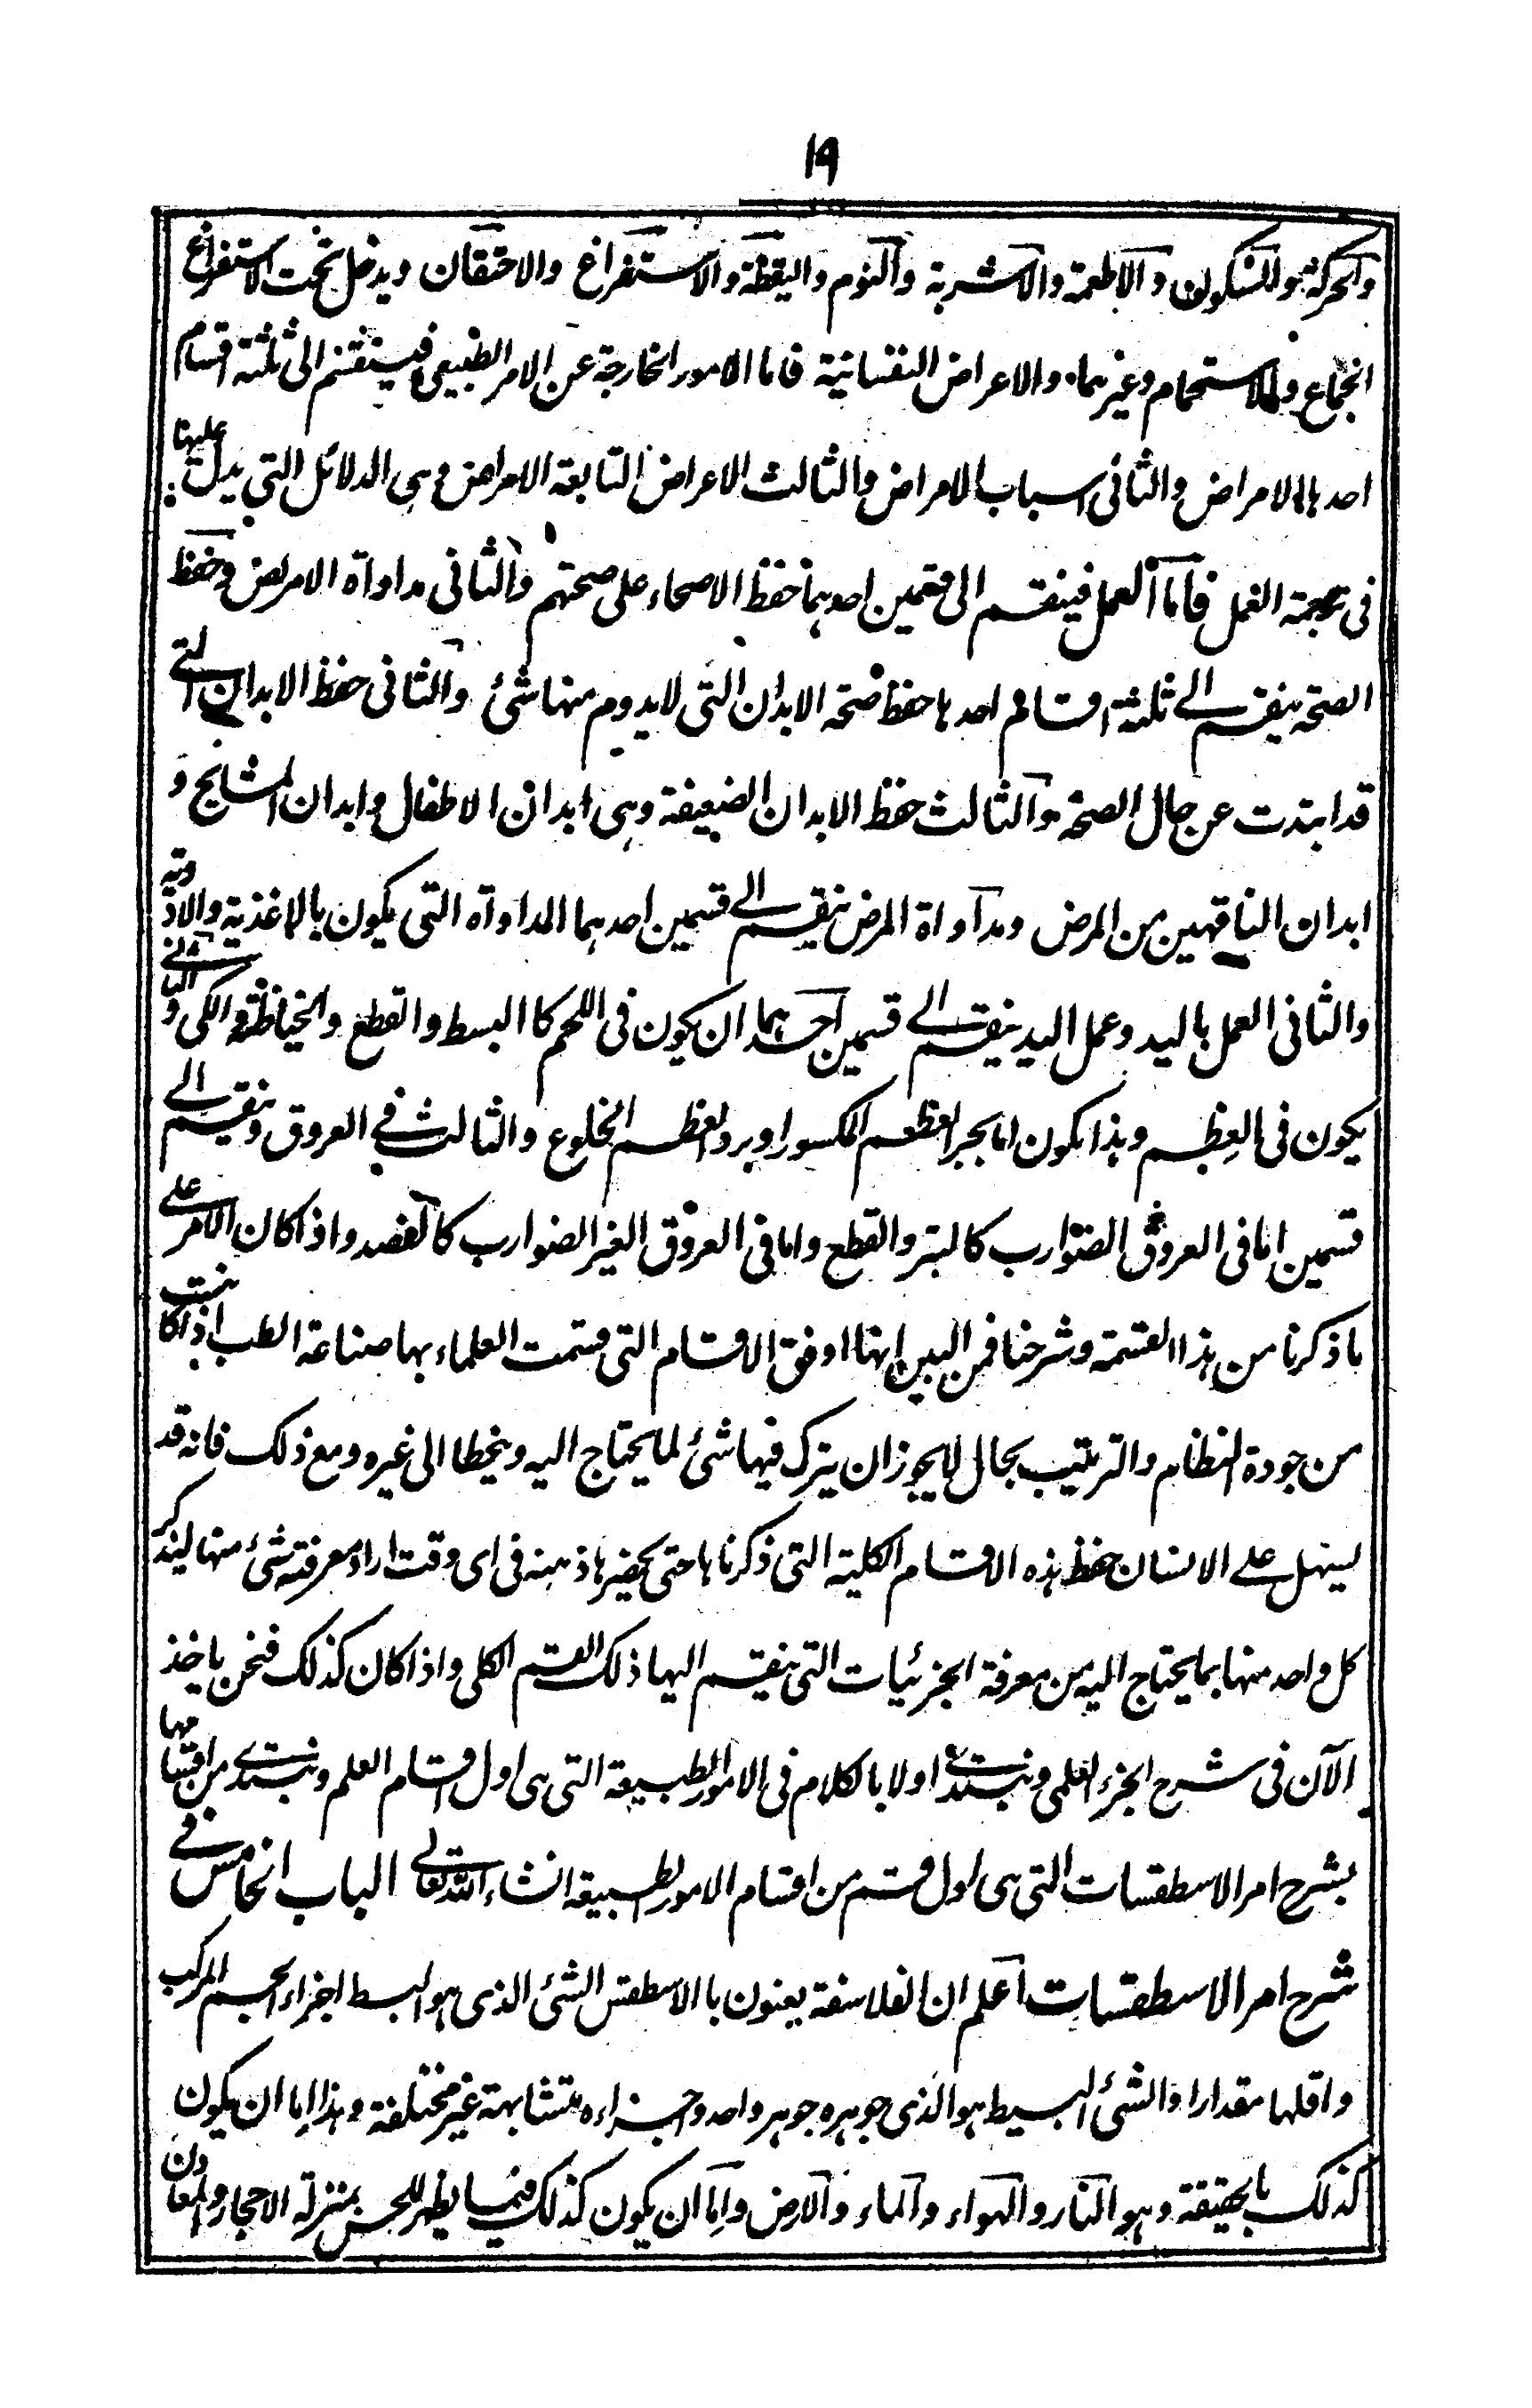 ١٩
والحركة والسكون والاطعمة والاشربة والنوم واليقظة والاستفراغ والاحتقان ويدخل تحت الاستفراغ
الجماع والاستحمام وغيرهما والاعراض النفسانية فاما الامور الخارجة عن الامر الطبيعى فينقسم الى ثلثة اقسام
احدها الامراض والثانى اسباب الامراض والثالث الاعراض التابعة الامراض وهى الدلائل التى يدل عليها
فى العمل فاما العمل فينقسم الى قسمين احدهما حفظ الاصحاء على صحتهم والثانى مداواة الامراض وحفظ
الصحة ينقسم الى ثلثة اقسام احدها حفظ صحة الابدان التى لايدوم منها شئ والثانى حفظ الابدان التى
قد ابتدت عن حال الصحة والثالث حفظ الابدان الضعيفة وهى ابدان الاطفال وابدان المشايخ و
ابدان الناقهين من المرض ومداواة المرض ينقسم الى قسمين احدهما المداواة التى يكون بالاغذية والادوية
والثانى العمل باليد وعمل اليد ينقسم الى قسمين احدهما ان يكون فى اللحم كا البسط والقطع والخياطة والكى والثانى
يكون فى العظم وهذا يكون اما بجبر العظم المكسور او برد العظم المخلوع والثالث فى العروق وينقسم الى
قسمين اما فى العروق الضوارب كالبتر والقطع واما فى العروق الغير الضوارب كالفصد واذا كان الامر على
ما ذكرنا من هذا القسمة وشرحنا فمن البين انها اوفق الاقسام التى قسمت العلماء بها صناعة الطب اذ كانت
من جودة النظام والترتيب بحال لايجوز ان يترك فيها شئ لما يحتاج اليه ويخطا الى غيره ومع ذلك فانه قد
يسهل على الانسان حفظ هذه الاقسام الكلية التى ذكرناها حتى يحضرها ذهنه فى اى وقت اراد معرفة شئ منها ليذكر
كل واحد منها بما يحتاج اليه من معرفة الجزئيات التى ينقسم اليها ذلك القسم الكلى واذا كان كذلك فنحن ياخذ
الآن فى شرح الجزء العلمى ونبتدى اولا بالكلام فى الامور الطبيعة التى هى اول اقسام العلم ونبتدى من اقسامها
بشرح امر الاسطقسات التى هى اول قسم من اقسام الامور الطبيعة انشاء الله تعالى الباب الخامس فى
شرح امر الاسطقسات اعلم ان الفلاسفة يعنون با الاسطقس الشئ الذى هو ابسط اجزاء الجسم المركب
واقلها مقدارا والشئ البسيط هو الذى جوهره جوهر واحد واجزاءه متشابهة غير مختلفة وهذا اما ان يكون
كذلك بالحقيقة وهو النار والهواء والماء والارض واما ان يكون كذلك فيما يظهر للحس بمنزلة الاحجار والمعادن